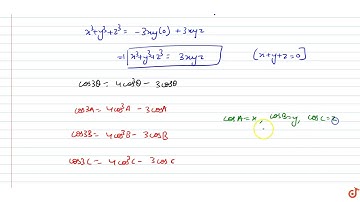 x³+y³+z³ = -3xy(0) + 3xyz
⇒ x³+y³+z³ = 3xyz [x+y+z=0]
cos3θ = 4cos³θ - 3cosθ
cos3A = 4cos³A - 3cosA
cosA=x, cosB=y, cosC=z
cos3B = 4cos³B - 3cosB
cos3C = 4cos³C - 3cosC